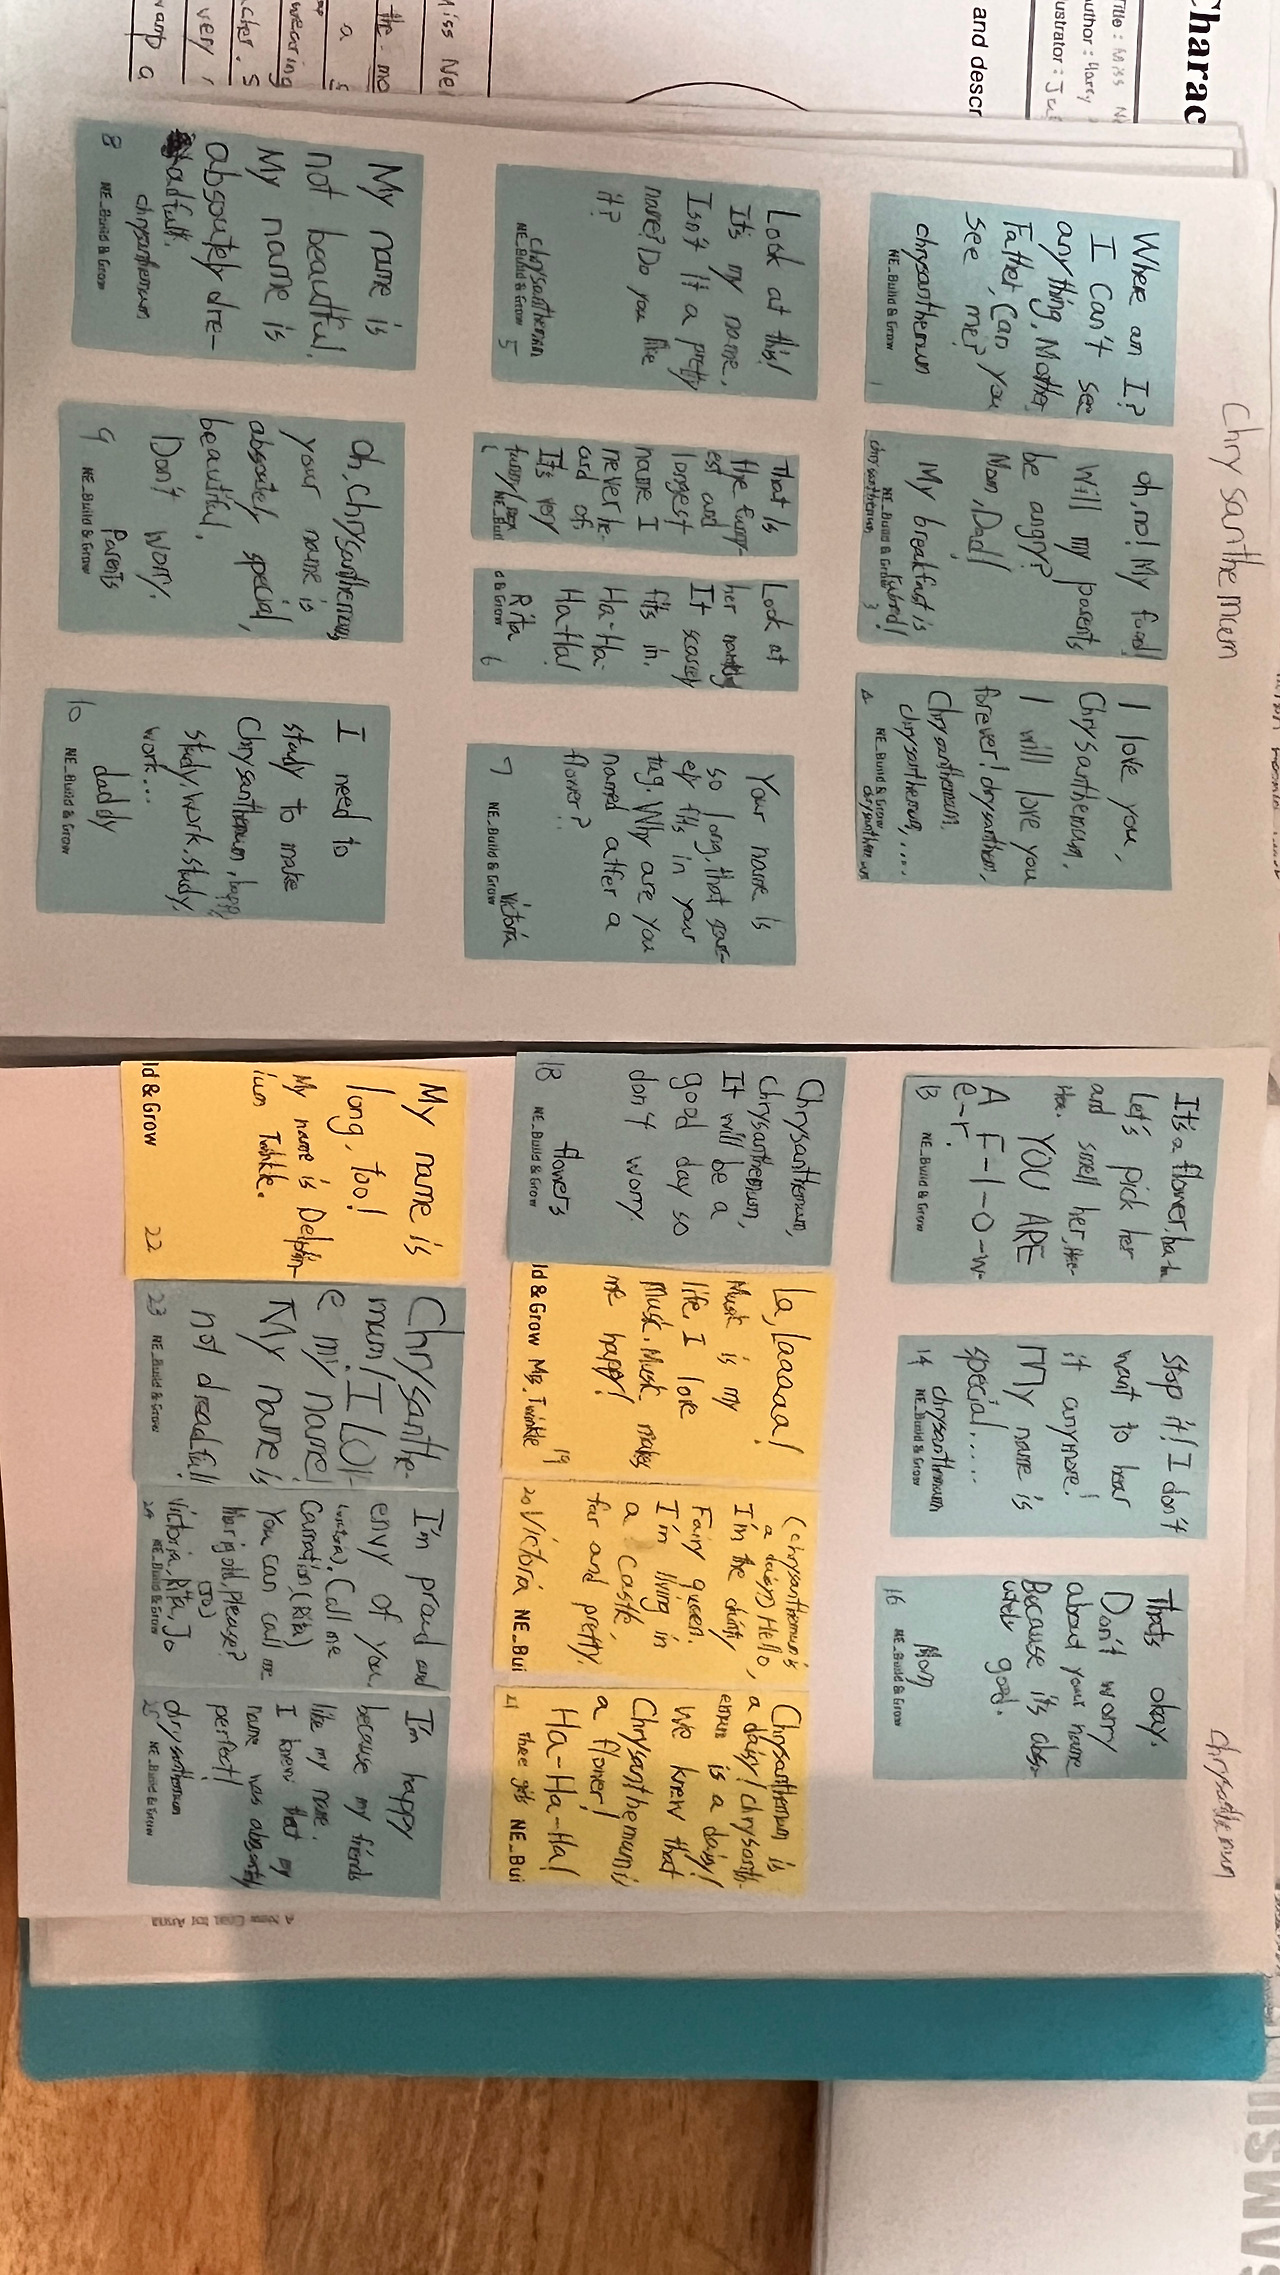 Charac
Title : Miss Ne
uthor : Harry
ustrator : Jul
and descr
Miss Nel
the mo
a
wearing
cher. S
very
vamp a
Chrysanthemum
Where am I?
I Can't see
anything, Mother,
Father, Can you
see me?
chrysanthemum
NE_Build & Grow
1
oh, no! My food!
Will my parents
be angry?
Mom, Dad!
My breakfast is
NE_Build & Grow
chrysanthemum
3
I love you,
Chrysanthemum,
I will love you
forever! chrysanthem,
Chrysanthemum,
chrysanthemum, ....
4
NE_Build & Grow
chrysanthemum
Look at this!
It's my name,
Isn't it a pretty
name? Do you like
it?
chrysanthemum
NE_Build & Grow 5
That is
the funny-
est and
longest
name I
never he-
ard of.
It's very
funny!
NE_Buil
Look at
her
It scarsely
fits in.
Ha-Ha-
Ha-Ha!
Rita
d & Grow
6
Your name is
so long, that scar-
ely fits in your
tag. Why are you
named atfer a
flower?
7 NE_Build & Grow
Victoria
My name is
not beautiful.
My name is
absoutely dre-
adfull.
chrysanthemum
8 NE_Build & Grow
oh, chrysanthemum,
your name is
absoutely special,
beautiful,
Don't Worry.
Parents
9 NE_Build & Grow
I need to
study to make
Chrysanthmum happy,
study, work, study,
work...
daddy
10 NE_Build & Grow
chrysanthemum
It's a flower, ha-ha
Let's pick her
and smell her, Hee-
Hee.
YOU ARE
A F-l-o-w-
e-r!
13 NE_Build & Grow
stop it! I don't
want to hear
it anymore!
My name is
special.....
chrysanthemum
14 NE_Build & Grow
Thats okay.
Don't worry
about your name
Because it's abso-
utely good.
Mom
16 NE_Build & Grow
Chrysanthemum,
Chrysanthemum,
It will be a
good day so
don't worry.
flowers
18 NE_Build & Grow
la, laaaaa!
Musik is my
life. I love
Musik. Musik makes
me happy!
19
ld & Grow Ms. Twinkle
(chrysanthemum's
a daisy) Hello,
I'm the dainty
Fairy queen.
I'm living in
a castle,
far and pretty.
20 Victoria NE_Bui
Chrysanthemum is
a daisy! chrysanth-
emum is a daisy!
We knew that
Chrysanthemum is
a flower!
Ha-Ha-Ha!
21 Three girls NE_Bui
My name is
long, too!
My name is Delphin-
ium Twinkle.
ld & Grow 22
Chrysanthe-
mum! I LOV-
e my name!
My name is
not dreadfull!
23 NE_Build & Grow
I'm proud and
envy of you.
(victoria). Call me
Carnation, (Rita)
You can call me
Marigold, please?
(Jo)
Victoria, Rita, Jo
24 NE_Build & Grow
I'm happy
because my friends
like my name.
I knew that my
name was absoutely
perfect!
chrysanthemum
25 NE_Build & Grow